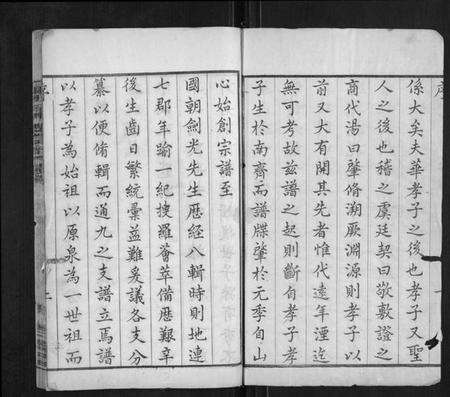 序
係大矣夫華孝子之後也孝子又聖
人之後也稽之虞廷契曰敬敷證之
商代湯曰肇脩溯厥淵源則孝子以
前又大有開其先者惟代遠年湮迄
無可考故玆譜之起則斷自孝子孝
子生於南齊而譜牒肇於元季自山
心始創宗譜至
國朝劍光先生歷經八輯時則地連
七郡年踰一紀搜羅薈萃備歷艱辛
後生齒日繁統彙益難爰議各支分
纂以便脩輯而通九之支譜立焉譜
以孝子為始祖以原泉為一世祖而